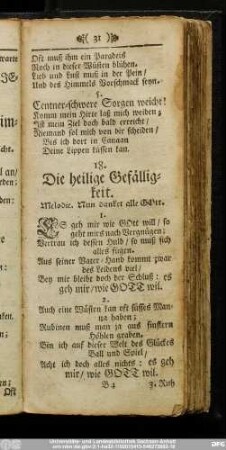 31
Oft muß ihm ein Paradeis
Noch in dieser Wüsten blühen.
Lieb und Lust muß in der Pein/
Und des Himmels Vorschmack seyn.
5.
Centner-schwere Sorgen weicht!
Komm mein Hirte laß mich weiden;
Ist mein Ziel doch bald erreicht/
Niemand sol mich von dir scheiden/
Bis ich dort in Canaan
Deine Lippen küssen kan.
18.
Die heilige Gefällig-
keit.
Melodie. Nun dancket alle GOtt.
1.
ES geh mir wie GOtt will/ so
geht mirs nach Vergnügen:
Vertrau ich dessen Huld/ so muß sich
alles fügen.
Aus seiner Vater-Hand kommt zwar
des Leidens viel/
Bey mir bleibt doch der Schluß: es
geh mir/wie GOTT wil.
2.
Auch eine Wüsten kan oft süsses Man-
na haben;
Rubinen muß man ja aus finstern
Höhlen graben.
Bin ich auf dieser Welt des Glückes
Ball und Spiel/
Acht ich doch alles nichts: es geh
mir/ wie GOTT wil.
B 4 3. Roh